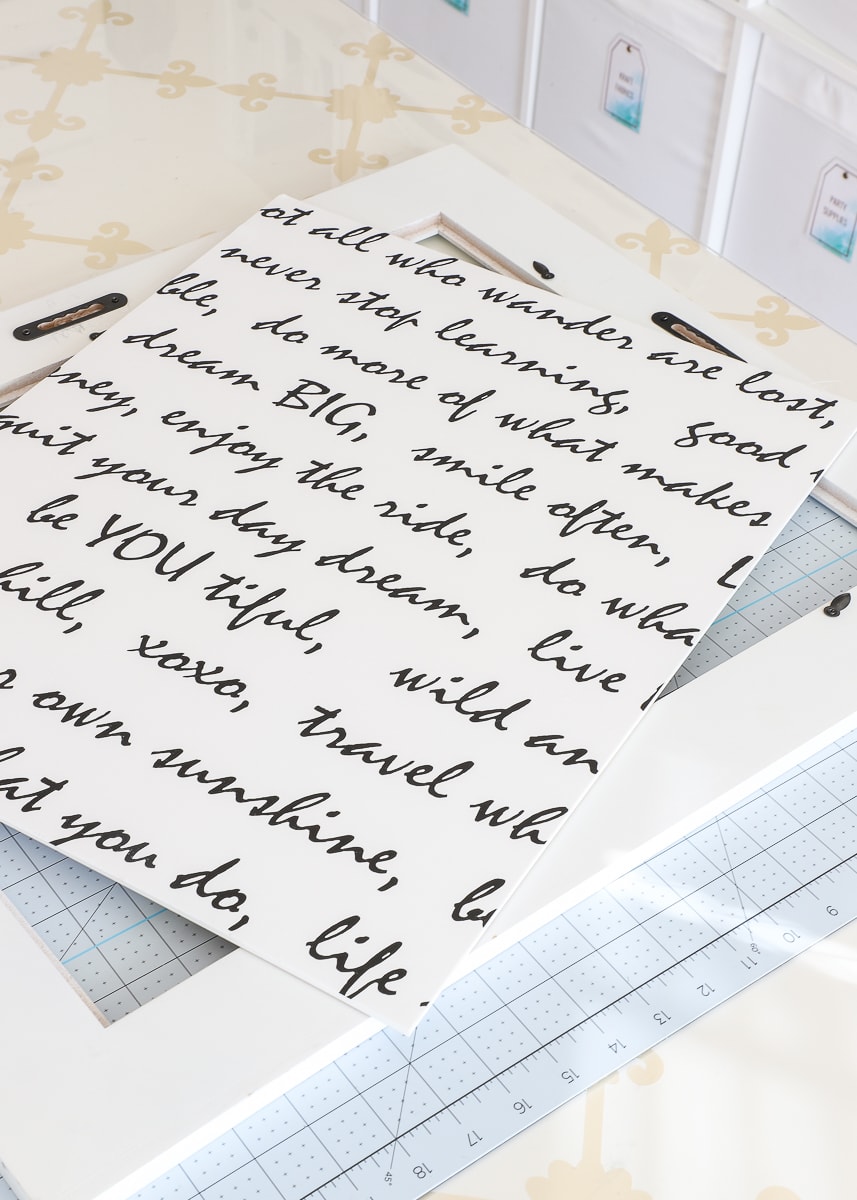 KRAFT
FABRICS
PARTY
SUPPLIES
ot all who wander are lost,
never stop learning, good
ble, do more of what makes
dream BIG, smile often,
ney, enjoy the ride, do wha
quit your day dream, live
be YOU tiful, wild an
hill, xoxo, travel wh
r own sunshine, be
at you do, life
9
10
11
12
13
14
15
16
17
18
45°